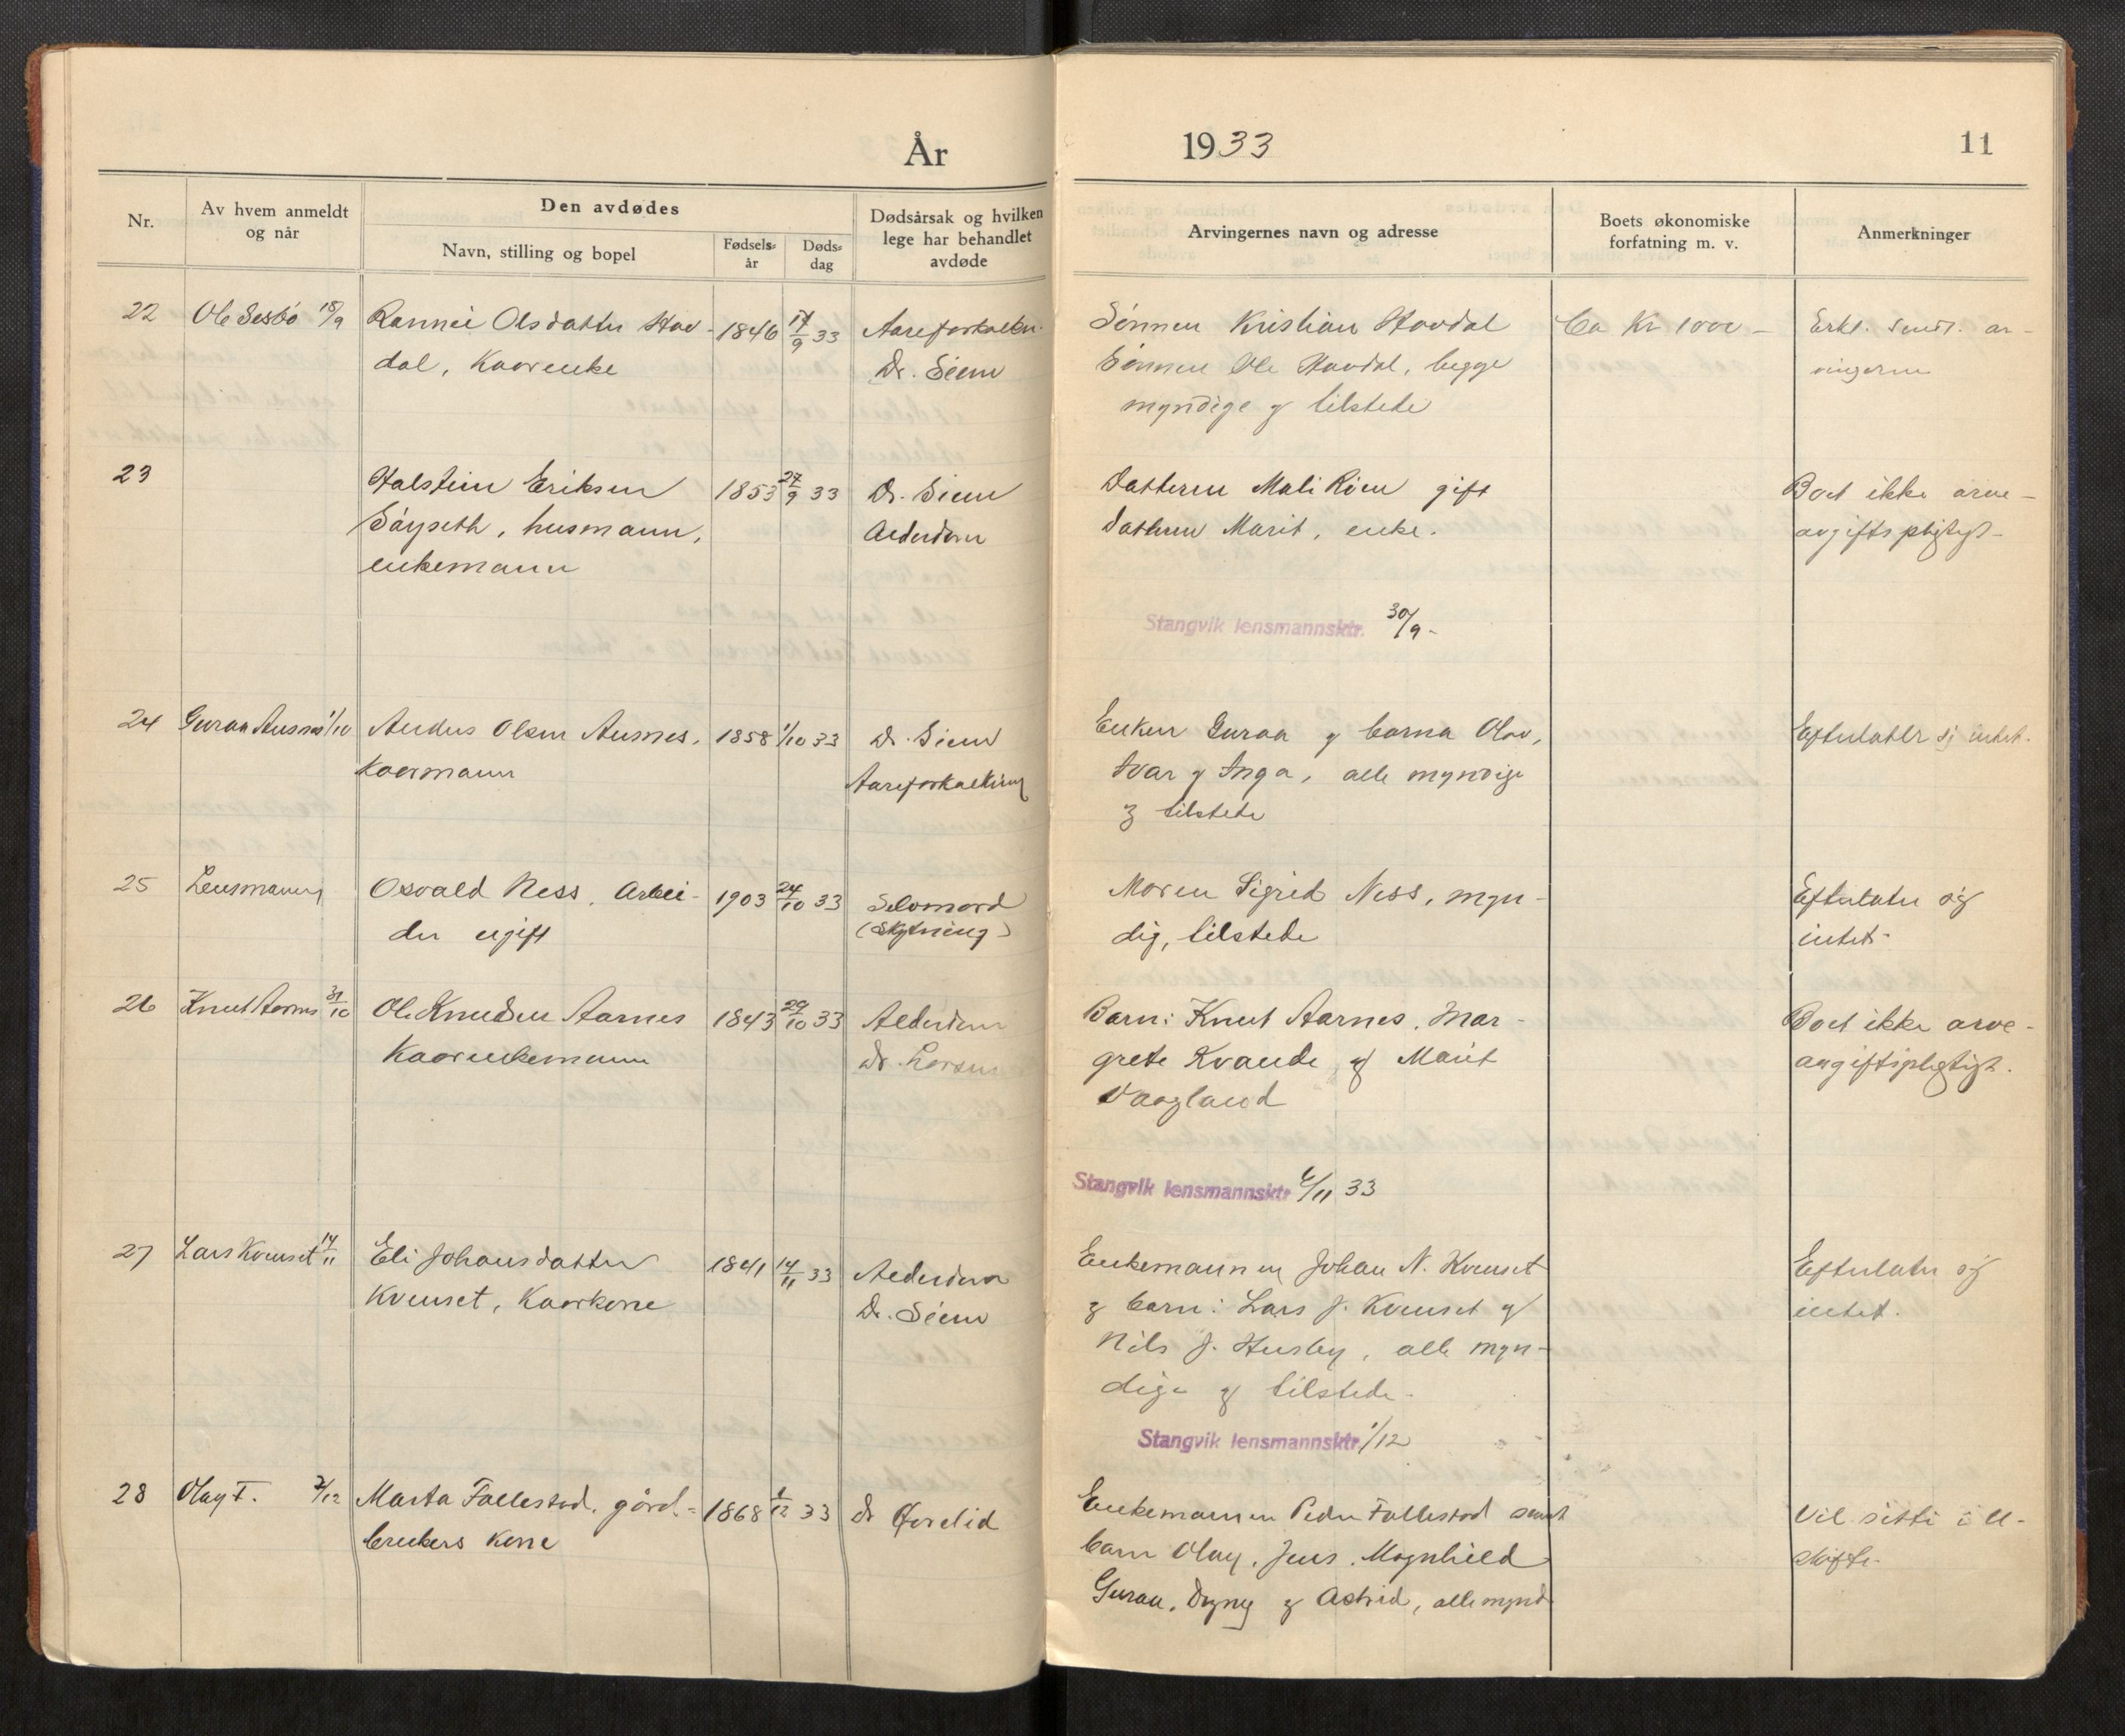 År 1933
11
Nr.
Av hvem anmeldt
og når
Den avdødes
Navn, stilling og bopel
Fødsels-
år
Døds-
dag
Dødsårsak og hvilken
lege har behandlet
avdøde
Arvingernes navn og adresse
Boets økonomiske
forfatning m. v.
Anmerkninger
22 Ole Sesbø 18/9 Rannei Olsdatter Hav- 1846 17/9 33 Aareforkalkn. Sønnen Kristian Havdal Ca Kr 1000 - Erkl. sendt. ar-
dal, Kaarenke Dr. Siem Sønnen Ole Havdal, begge vingerne
myndige og tilstede
23 Halstein Eriksen 1853 27/9 33 Dr. Siem Datteren Mali Röen gift Boet ikke arve-
Säyseth, husmann, Alderdom datteren Marit, enke. avgiftspligtigt-
enkemann
Stangvik lensmannsktr. 30/9-
24 Guraa Ausnes 1/10 Andus Olsen Ausnes, 1858 1/10 33 Dr. Siem Enken Guraa og barna Olav, Efterlater sig intet.
Kaarmann Aareforkalkning Ivar og Inga, alle myndige
og tilstede
25 Lensmannen Osvald Ness, Arbei- 1903 24/10 33 Selvmord Moren Sigrid Ness, myn- Efterlater sig
der ugift (Skytning) dig, tilstede intet-
26 Knut Aarnes 31/10 Ole Knudsen Aarnes 1843 29/10 33 Alderdom Barn: Knut Aarnes, Mar- Boet ikke arve-
Kaarenkemann Dr. Larsen grete Kvande og Marit avgiftspligtigt.
Vaagland
Stangvik lensmannsktr 6/11 33
27 Lars Kvenset 14/11 Eli Johansdatter 1841 14/11 33 Alderdom Enkemannen Johan N. Kvenset Efterlater sig
Kvenset, Kaarkone Dr. Siem og barn: Lars J. Kvenset og intet.
Nils J. Husby, alle myn-
dige og tilstede.
Stangvik lensmannsktr 1/12
28 Olay F. 7/12 Marta Fallestad, gård- 1868 1/12 33 dr Øvrelid Enkemannen Peder Fallestad samt Vil sitte i u-
brukers kone barn Olay, Jens, Magnhild skifte-
Guraa, Dagny og Astrid, alle mynd